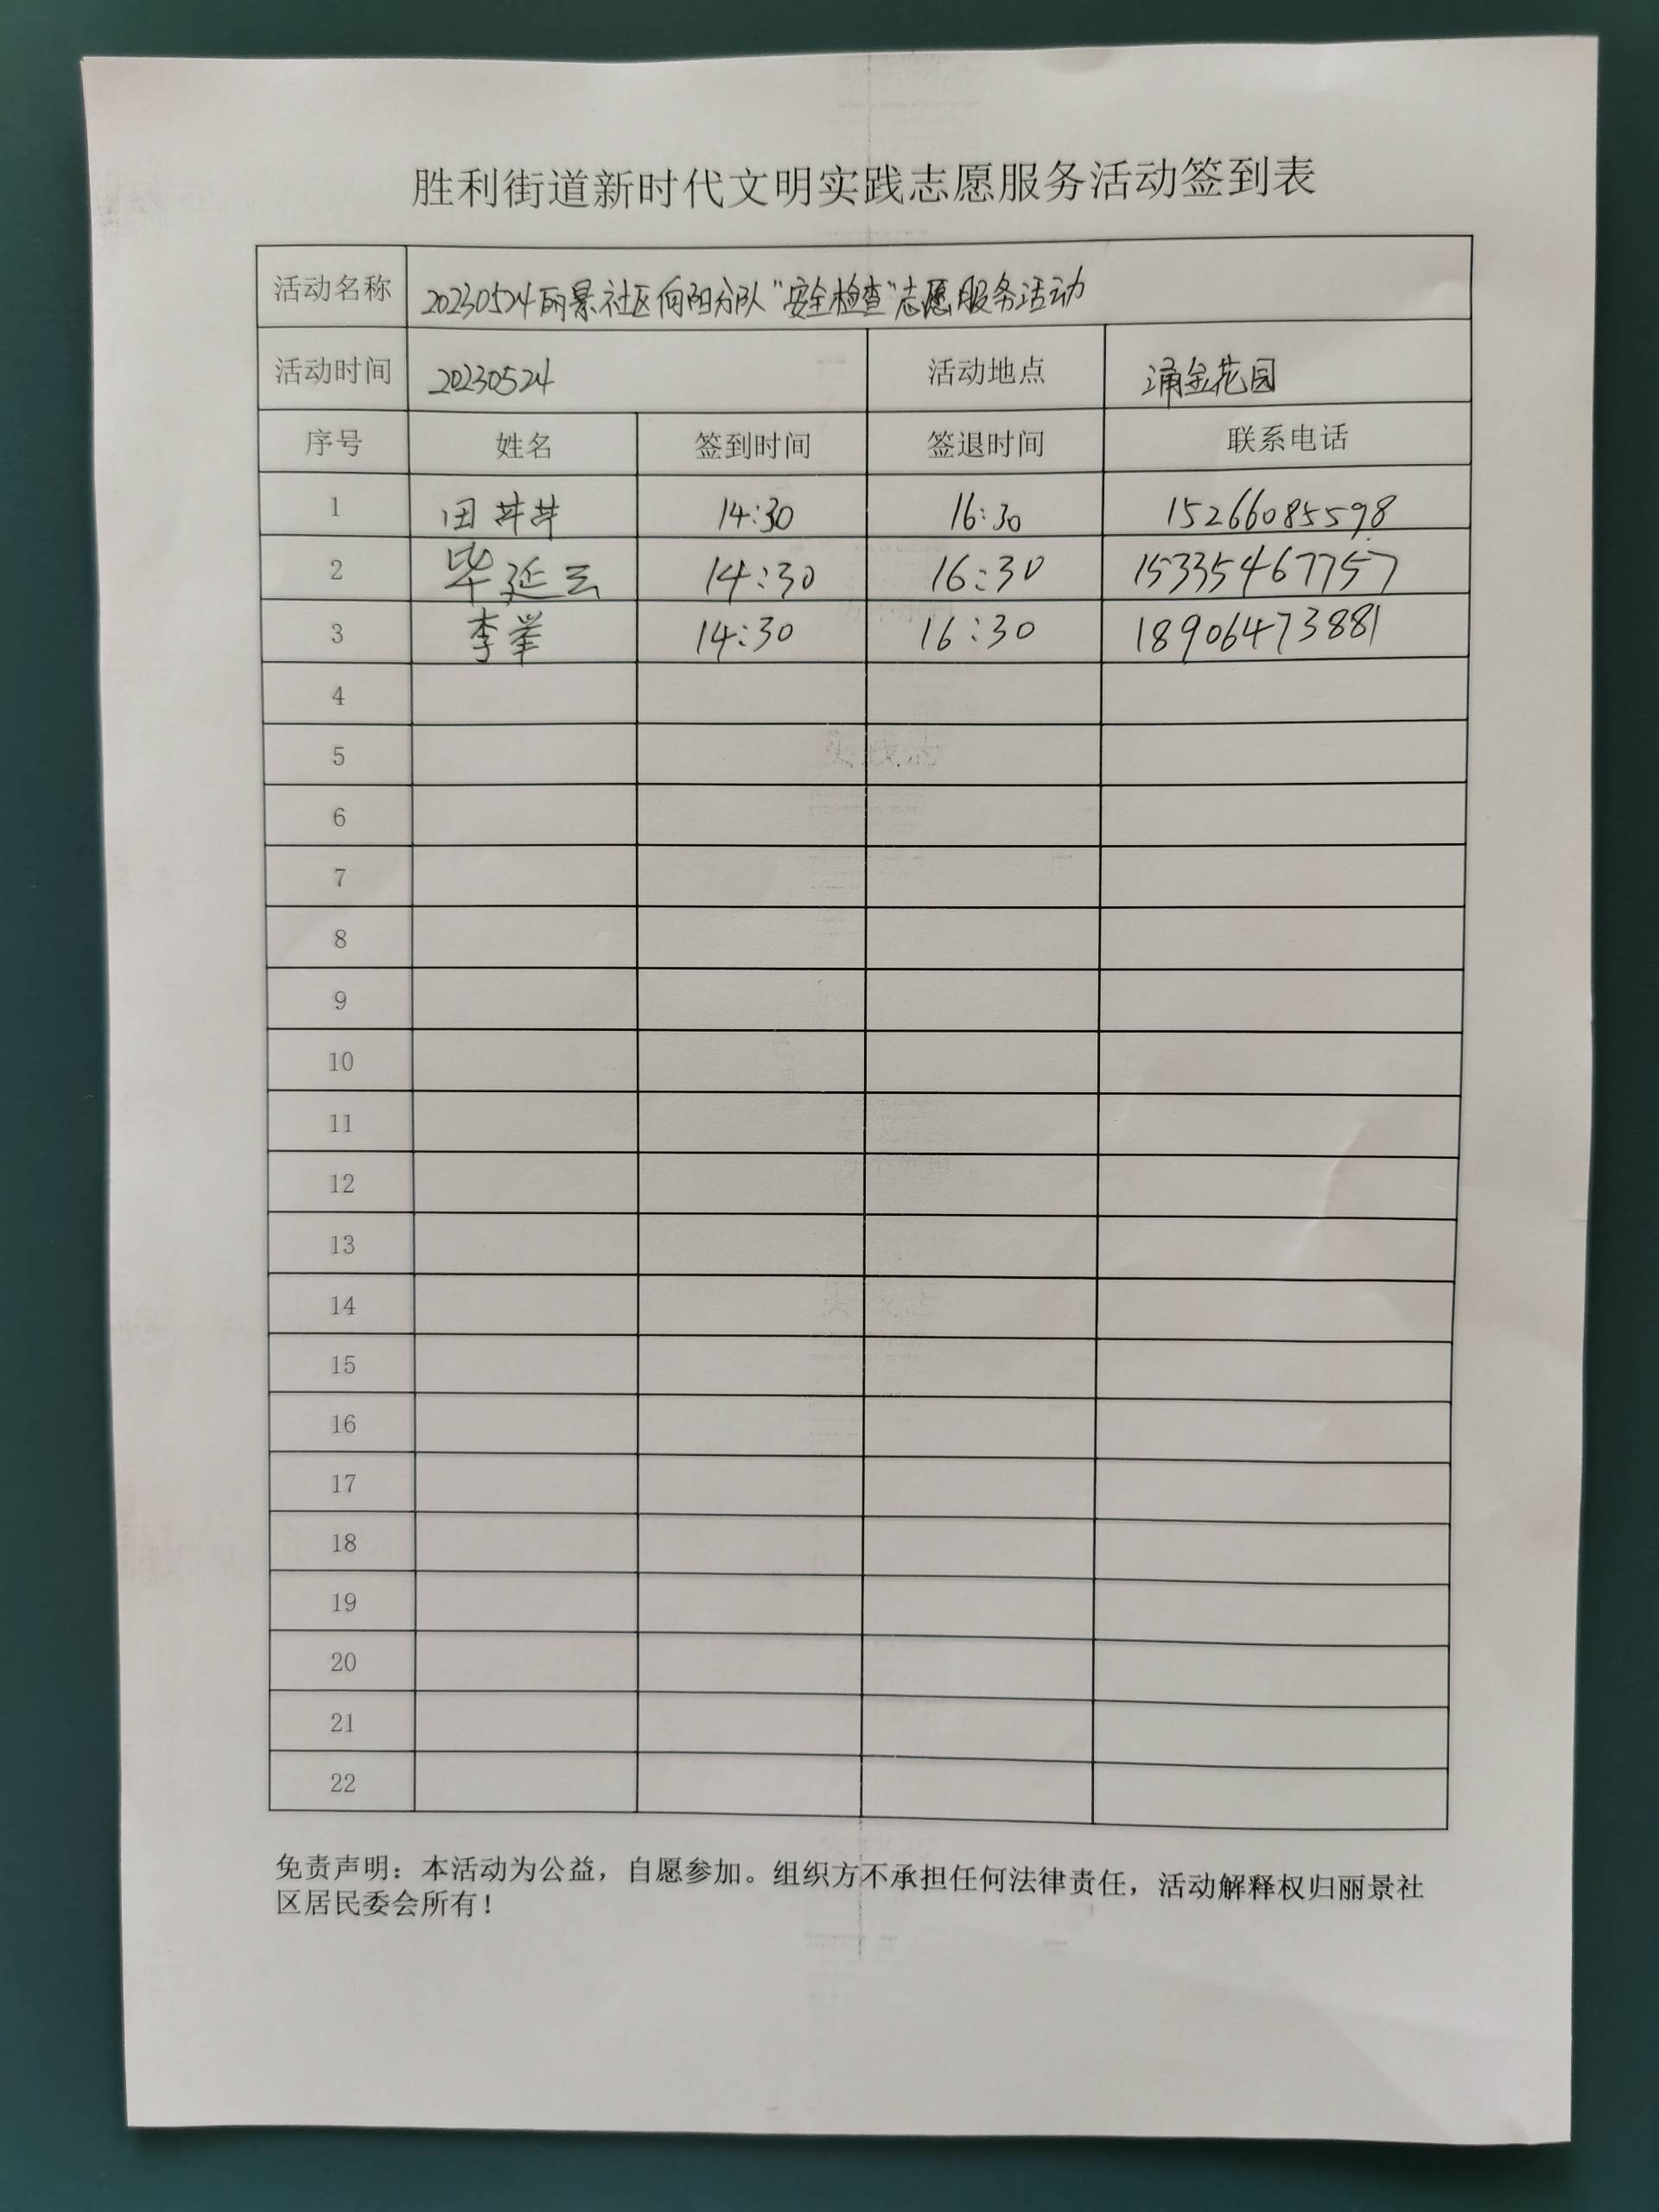 胜利街道新时代文明实践志愿服务活动签到表
活动名称 20230524丽景社区向阳分队"安全检查"志愿服务活动
活动时间 20230524 活动地点 涌金花园
序号 姓名 签到时间 签退时间 联系电话
1 田芊芊 14:30 16:30 15266085598
2 毕延云 14:30 16:30 15335467757
3 李举 14:30 16:30 18906473881
4
5
6
7
8
9
10
11
12
13
14
15
16
17
18
19
20
21
22
免责声明：本活动为公益，自愿参加。组织方不承担任何法律责任，活动解释权归丽景社
区居民委会所有！